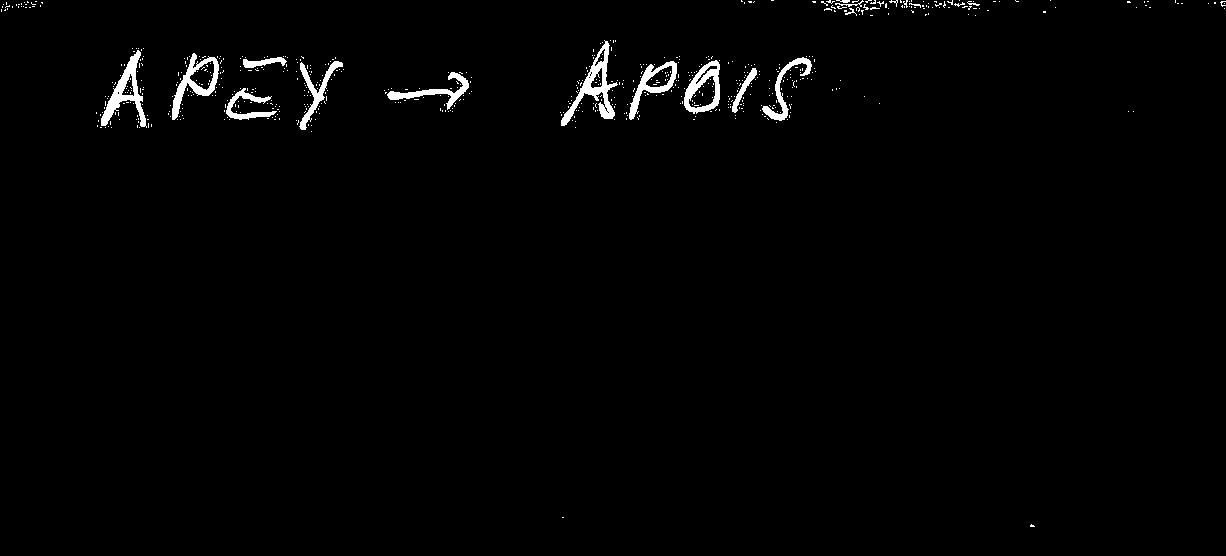 APEY → APOIS